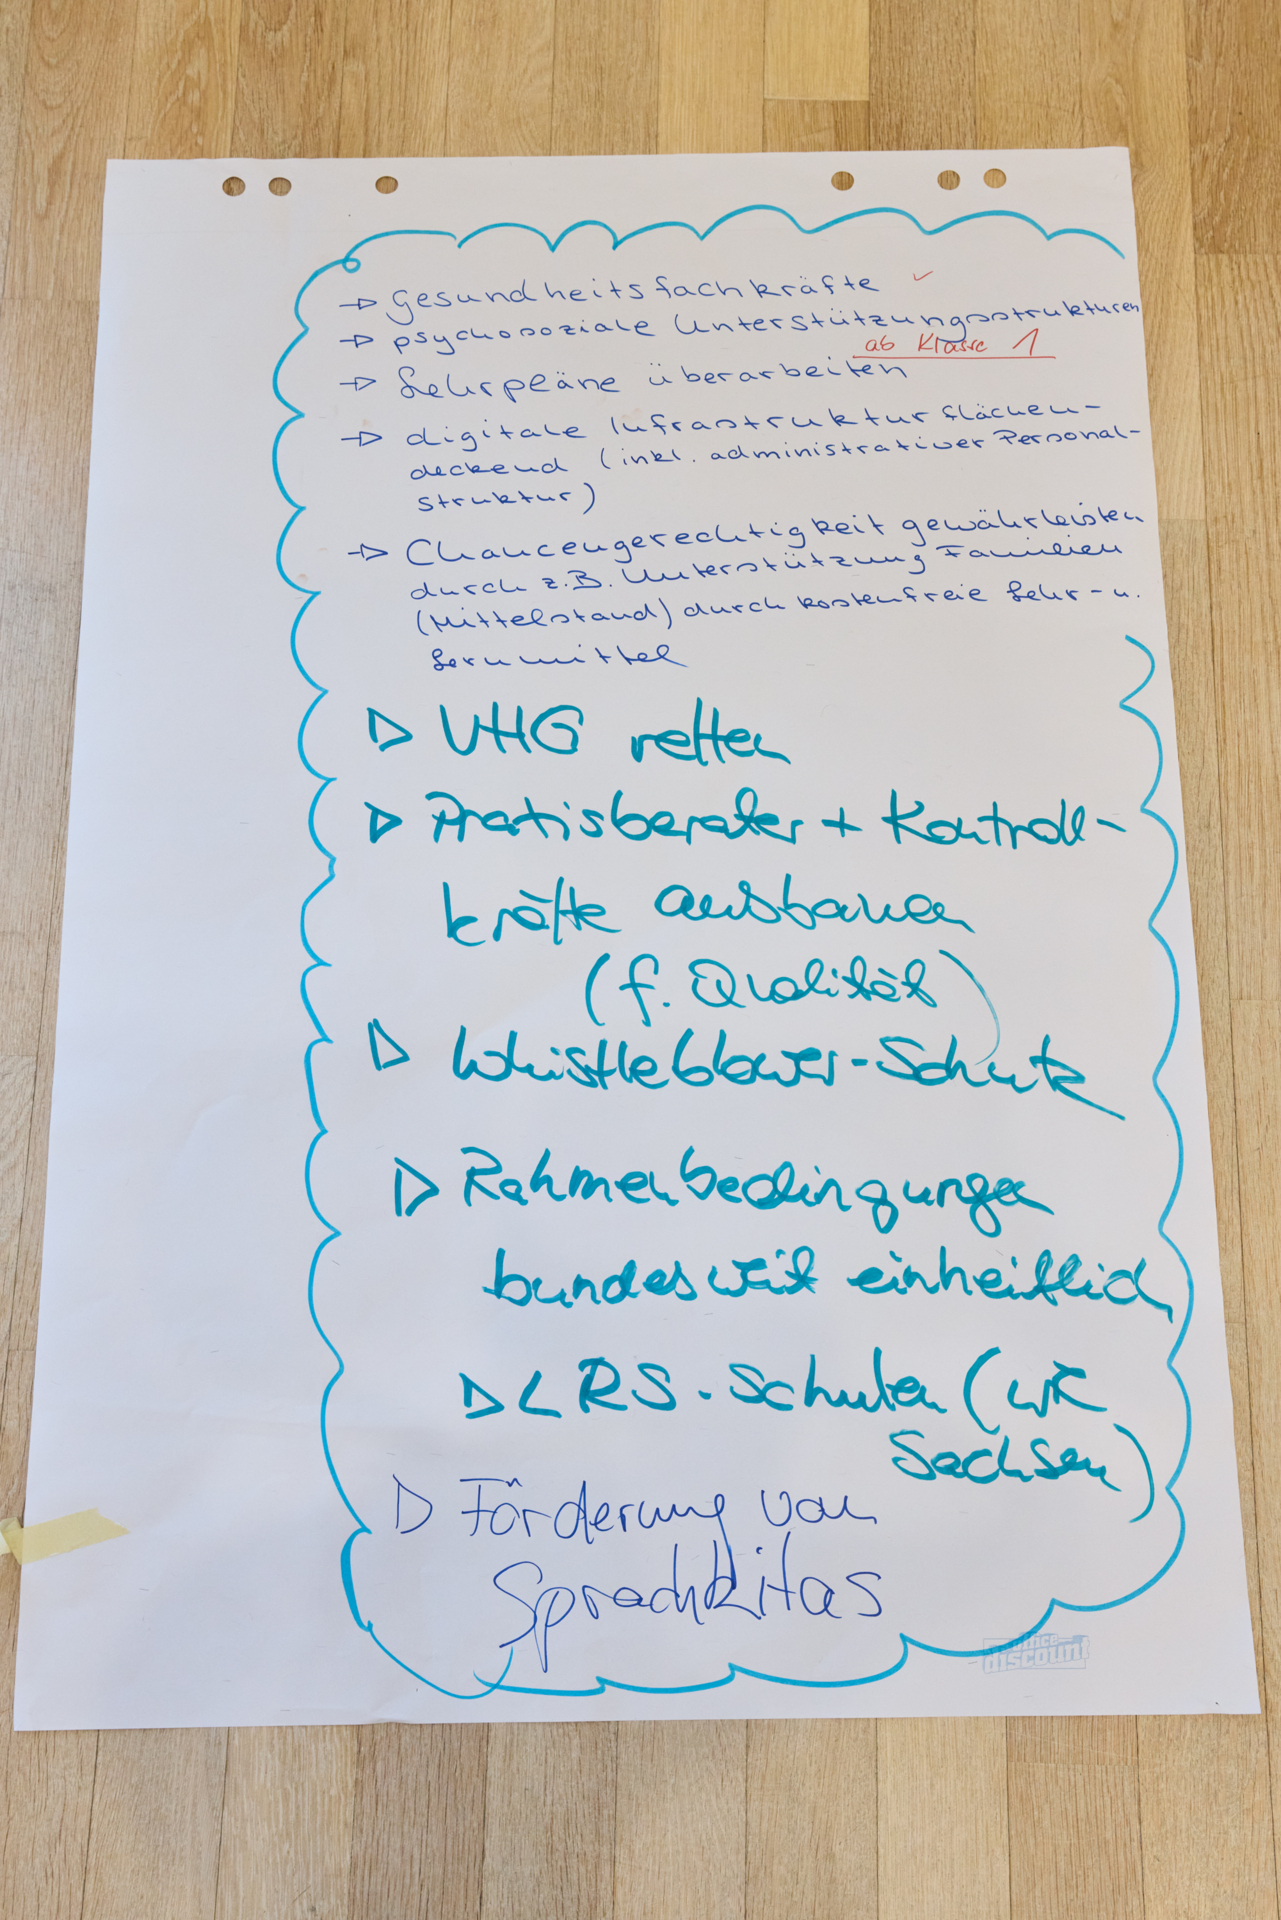 → Gesundheitsfachkräfte ✓
→ psychosoziale Unterstützungsstrukturen
ab Klasse 1
→ Lehrpläne überarbeiten
→ digitale Infrastruktur flächen-
deckend (inkl. administrativer Personal-
struktur)
→ Chancengerechtigkeit gewährleisten
durch z.B. Unterstützung Familien
(Mittelstand) durch kostenfreie Lehr- u.
Lernmittel
▷ VHG retten
▷ Praxisberater + Kontroll-
kräfte ausbauen
(f. Qualität)
▷ Whistleblower-Schutz
▷ Rahmenbedingungen
bundesweit einheitlich
▷ LRS-Schulen (wie
Sachsen)
▷ Förderung von
Sprachkitas
office
discount